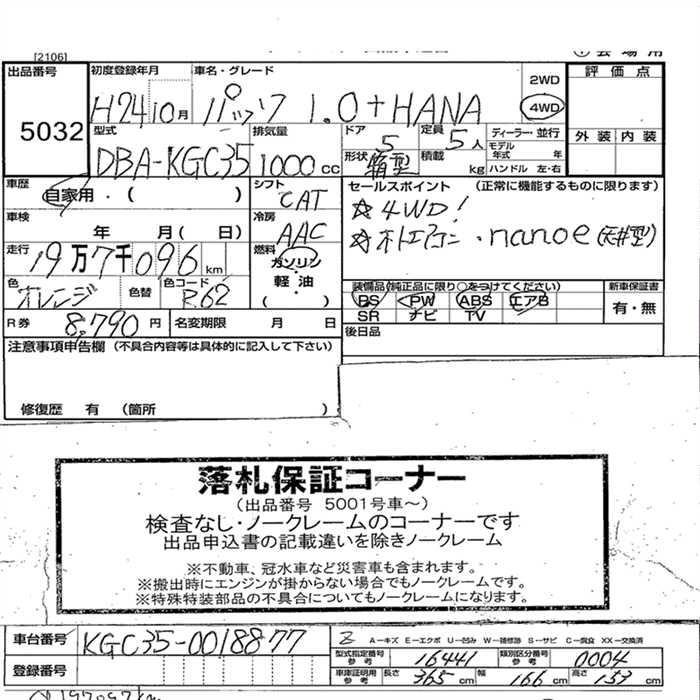 [2106]
出品番号 5032
初度登録年月 H24 10月
車名・グレード パッソ 1.0+HANA
2WD
4WD
評価点
外装 内装
型式 DBA-KGC35
排気量 1000cc
ドア 5
形状 箱型
定員 5人
積載 kg
ディーラー・並行
モデル年式 年
ハンドル 左・右
車歴 自家用・( )
シフト CAT
車検 年 月( 日)
冷房 AAC
走行 19万7千096km
燃料 ガソリン
軽・油
( )
色 オレンジ
色替
色コード R62
R券 8,790円
名変期限 月 日
セールスポイント (正常に機能するものに限ります)
☆4WD!
☆オートエアコン・nanoe(天井型)
装備品(純正品に限り○をつけてください)
PS PW ABS エアB
SR ナビ TV
新車保証書
有・無
後日品
注意事項申告欄 (不具合内容等は具体的に記入して下さい)
修復歴 有 (箇所 )
落札保証コーナー
(出品番号 5001号車〜)
検査なし・ノークレームのコーナーです
出品申込書の記載違いを除きノークレーム
※不動車、冠水車など災害車も含まれます。
※搬出時にエンジンが掛からない場合でもノークレームです。
※特殊特装部品の不具合についてもノークレームになります。
車台番号 KGC35-0018877
登録番号
A-キズ E-エクボ U-凹み W-補修跡 S-サビ C-腐食 XX-交換済
型式指定番号 参考 16441
類別区分番号 参考 0004
車庫証明用 参考 長さ 365cm 幅 166cm 高さ 153cm